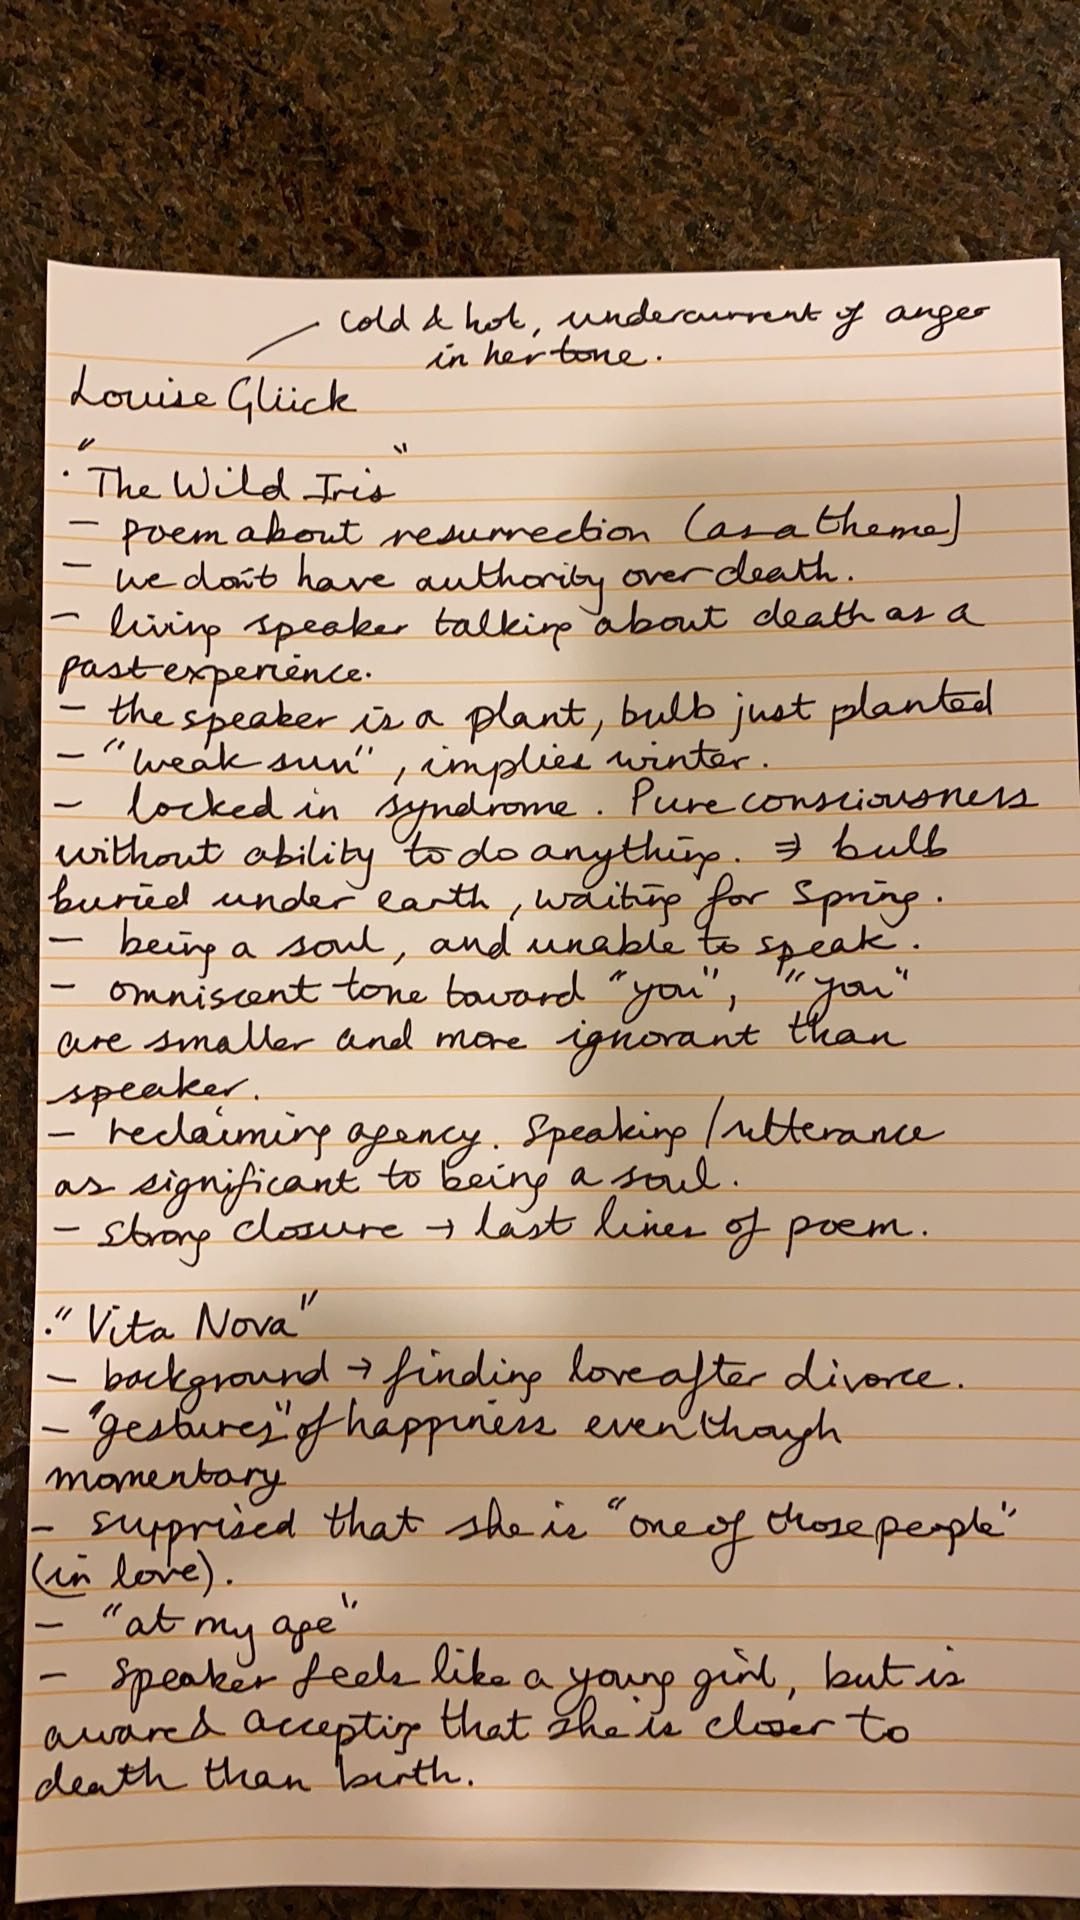 cold & hot, undercurrent of anger
in her tone.
Louise Glück
· "The Wild Iris"
- poem about resurrection (as a theme)
- we don't have authority over death.
- living speaker talking about death as a
past experience.
- the speaker is a plant, bulb just planted
- "weak sun", implies winter.
- locked in syndrome. Pure consciousness
without ability to do anything. ⇒ bulb
buried under earth, waiting for Spring.
- being a soul, and unable to speak.
- omniscent tone toward "you", "you"
are smaller and more ignorant than
speaker.
- reclaiming agency. Speaking / utterance
as significant to being a soul.
- strong closure → last lines of poem.
· "Vita Nova"
- background → finding love after divorce.
- "gestures" of happiness even though
momentary
- surprised that she is "one of those people"
(in love).
- "at my age"
- speaker feels like a young girl, but is
aware & accepting that she is closer to
death than birth.